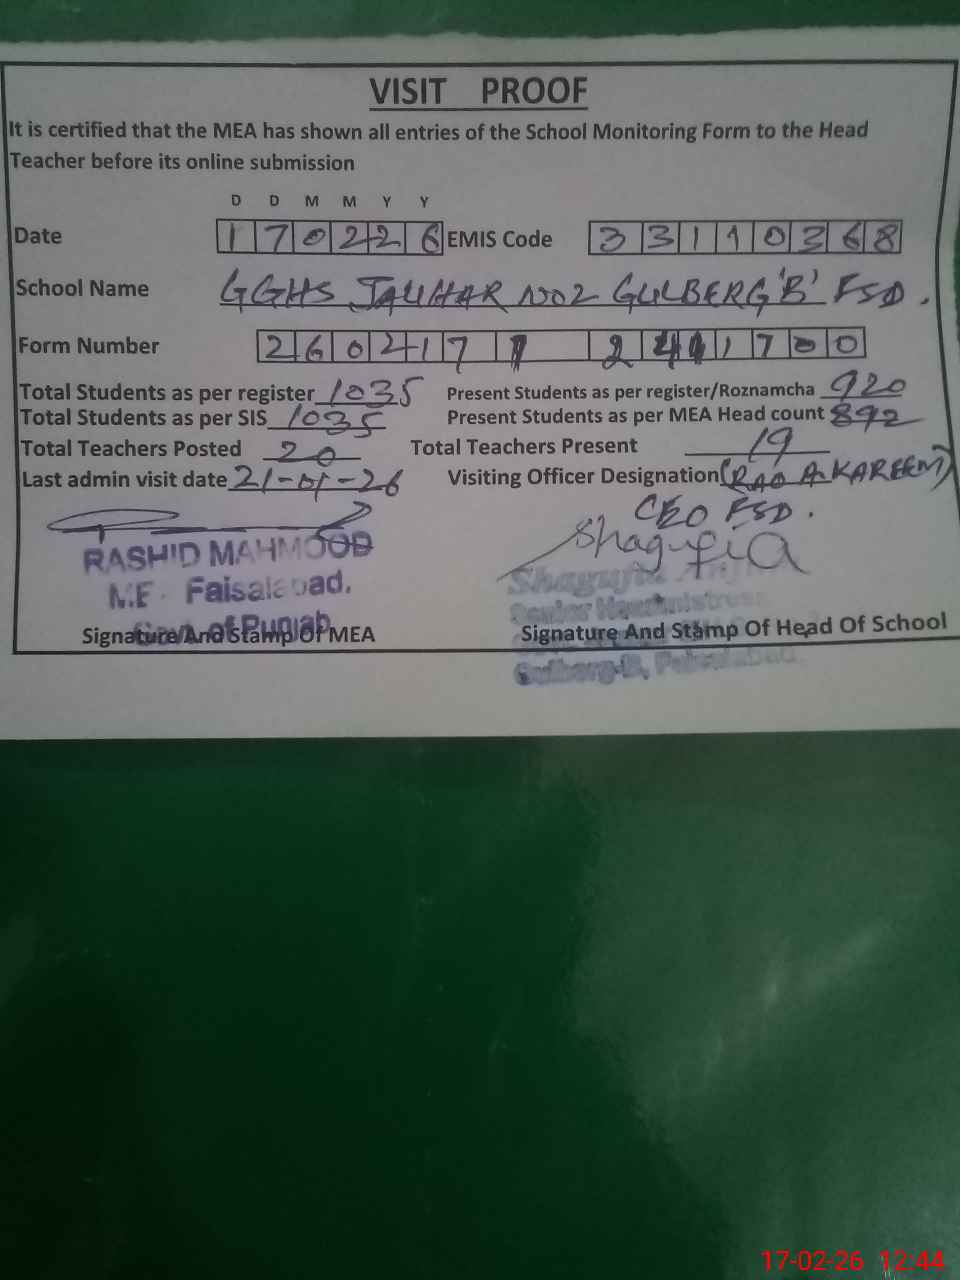 VISIT PROOF
It is certified that the MEA has shown all entries of the School Monitoring Form to the Head
Teacher before its online submission
D D M M Y Y
Date 170226 EMIS Code 33110368
School Name GGHS JAUHAR NO2 GULBERG 'B' FSD.
Form Number 2602171 2411700
Total Students as per register 1035 Present Students as per register/Roznamcha 920
Total Students as per SIS 1035 Present Students as per MEA Head count 892
Total Teachers Posted 20 Total Teachers Present 19
Last admin visit date 21-01-26 Visiting Officer Designation (RAO A. KAREEM)
CEO FSD.
RASHID MAHMOOD
Shagufta
Faisalabad.
Govt. of Punjab
Signature And Stamp Of MEA Signature And Stamp Of Head Of School
Gulberg-B, Faisalabad.
17-02-26 12:44